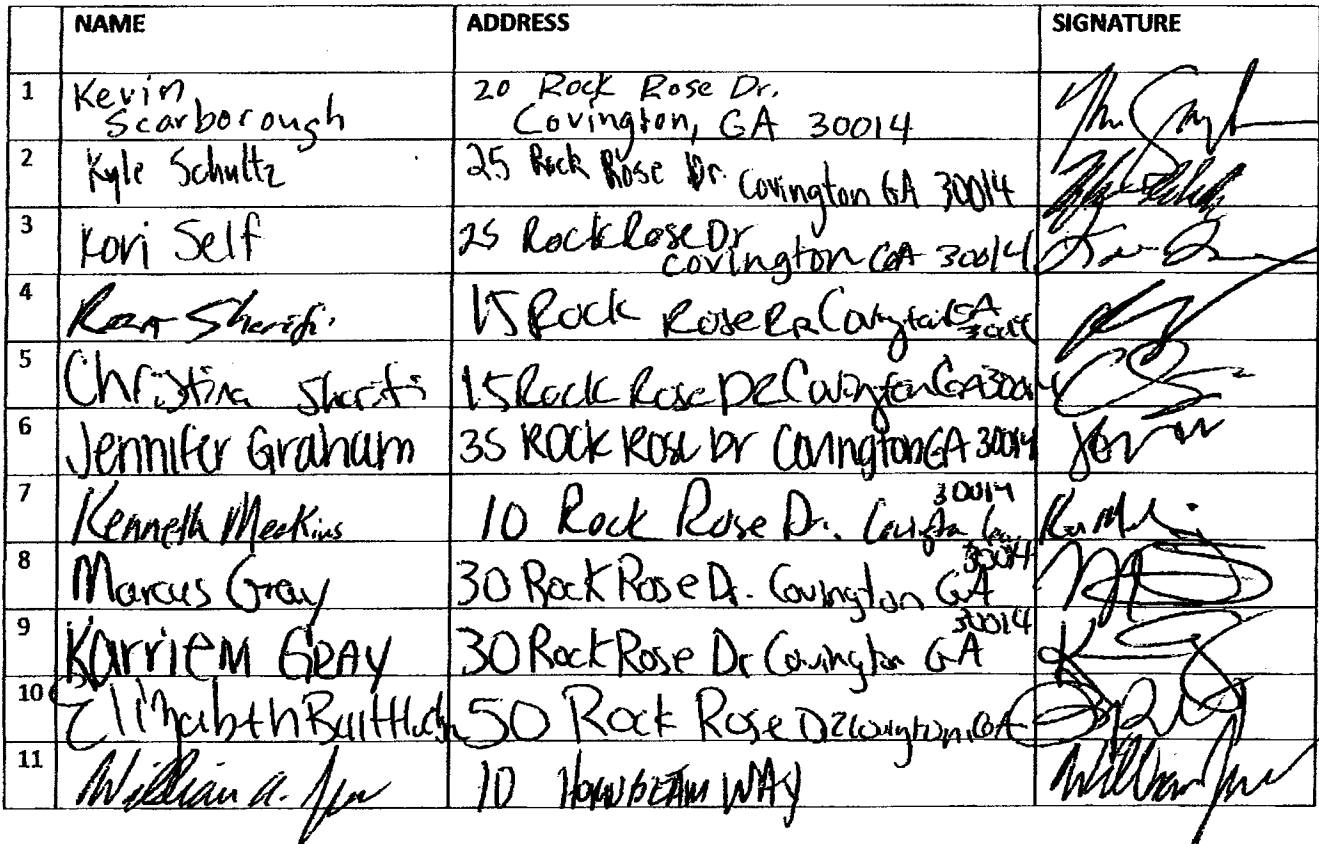 NAME ADDRESS SIGNATURE
1 Kevin Scarborough 20 Rock Rose Dr. Covington, GA 30014
2 Kyle Schultz 25 Rock Rose Dr. Covington GA 30014
3 Kori Self 25 Rock Rose Dr Covington GA 30014
4 Sherifi 15 Rock Rose Covington GA
5 Christina Sherifi 15 Rock Rose DR Covington GA 30014
6 Jennifer Graham 35 Rock Rose Dr Covington GA 30014
7 Kenneth Meekins 10 Rock Rose Dr. Covington 30014
8 Marcus Gray 30 Rock Rose Dr. Covington GA 30014
9 Karriem GRAY 30 Rock Rose Dr Covington GA 30014
10 Elizabeth 50 Rock Rose DR Covington, GA
11 William A. 10 HORNBEAM WAY